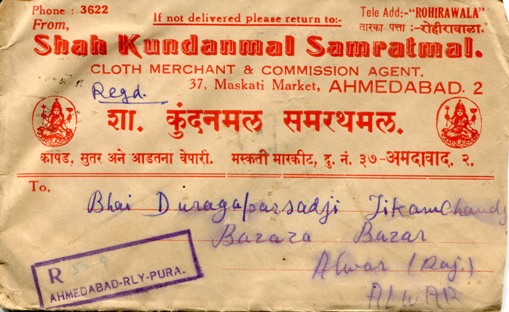 Phone : 3622 If not delivered please return to:- Tele Add:-"ROHIRAWALA"
From, तारका पत्ता :-रोहीरावाला.
Shah Kundanmal Samratmal.
CLOTH MERCHANT & COMMISSION AGENT.
Regd. 37, Maskati Market, AHMEDABAD. 2
शा. कुंदनमल समरथमल.
कापड, सुतर अने आडतना वेपारी. मस्कती मारकीट, दु. नं. ३७-अमदावाद. २.
To,
Bhai Duragaparsadji Tikamchandji
Bazaza Bazar
Alwar (Raj.)
ALWAR
R
AHMEDABAD-RLY-PURA.